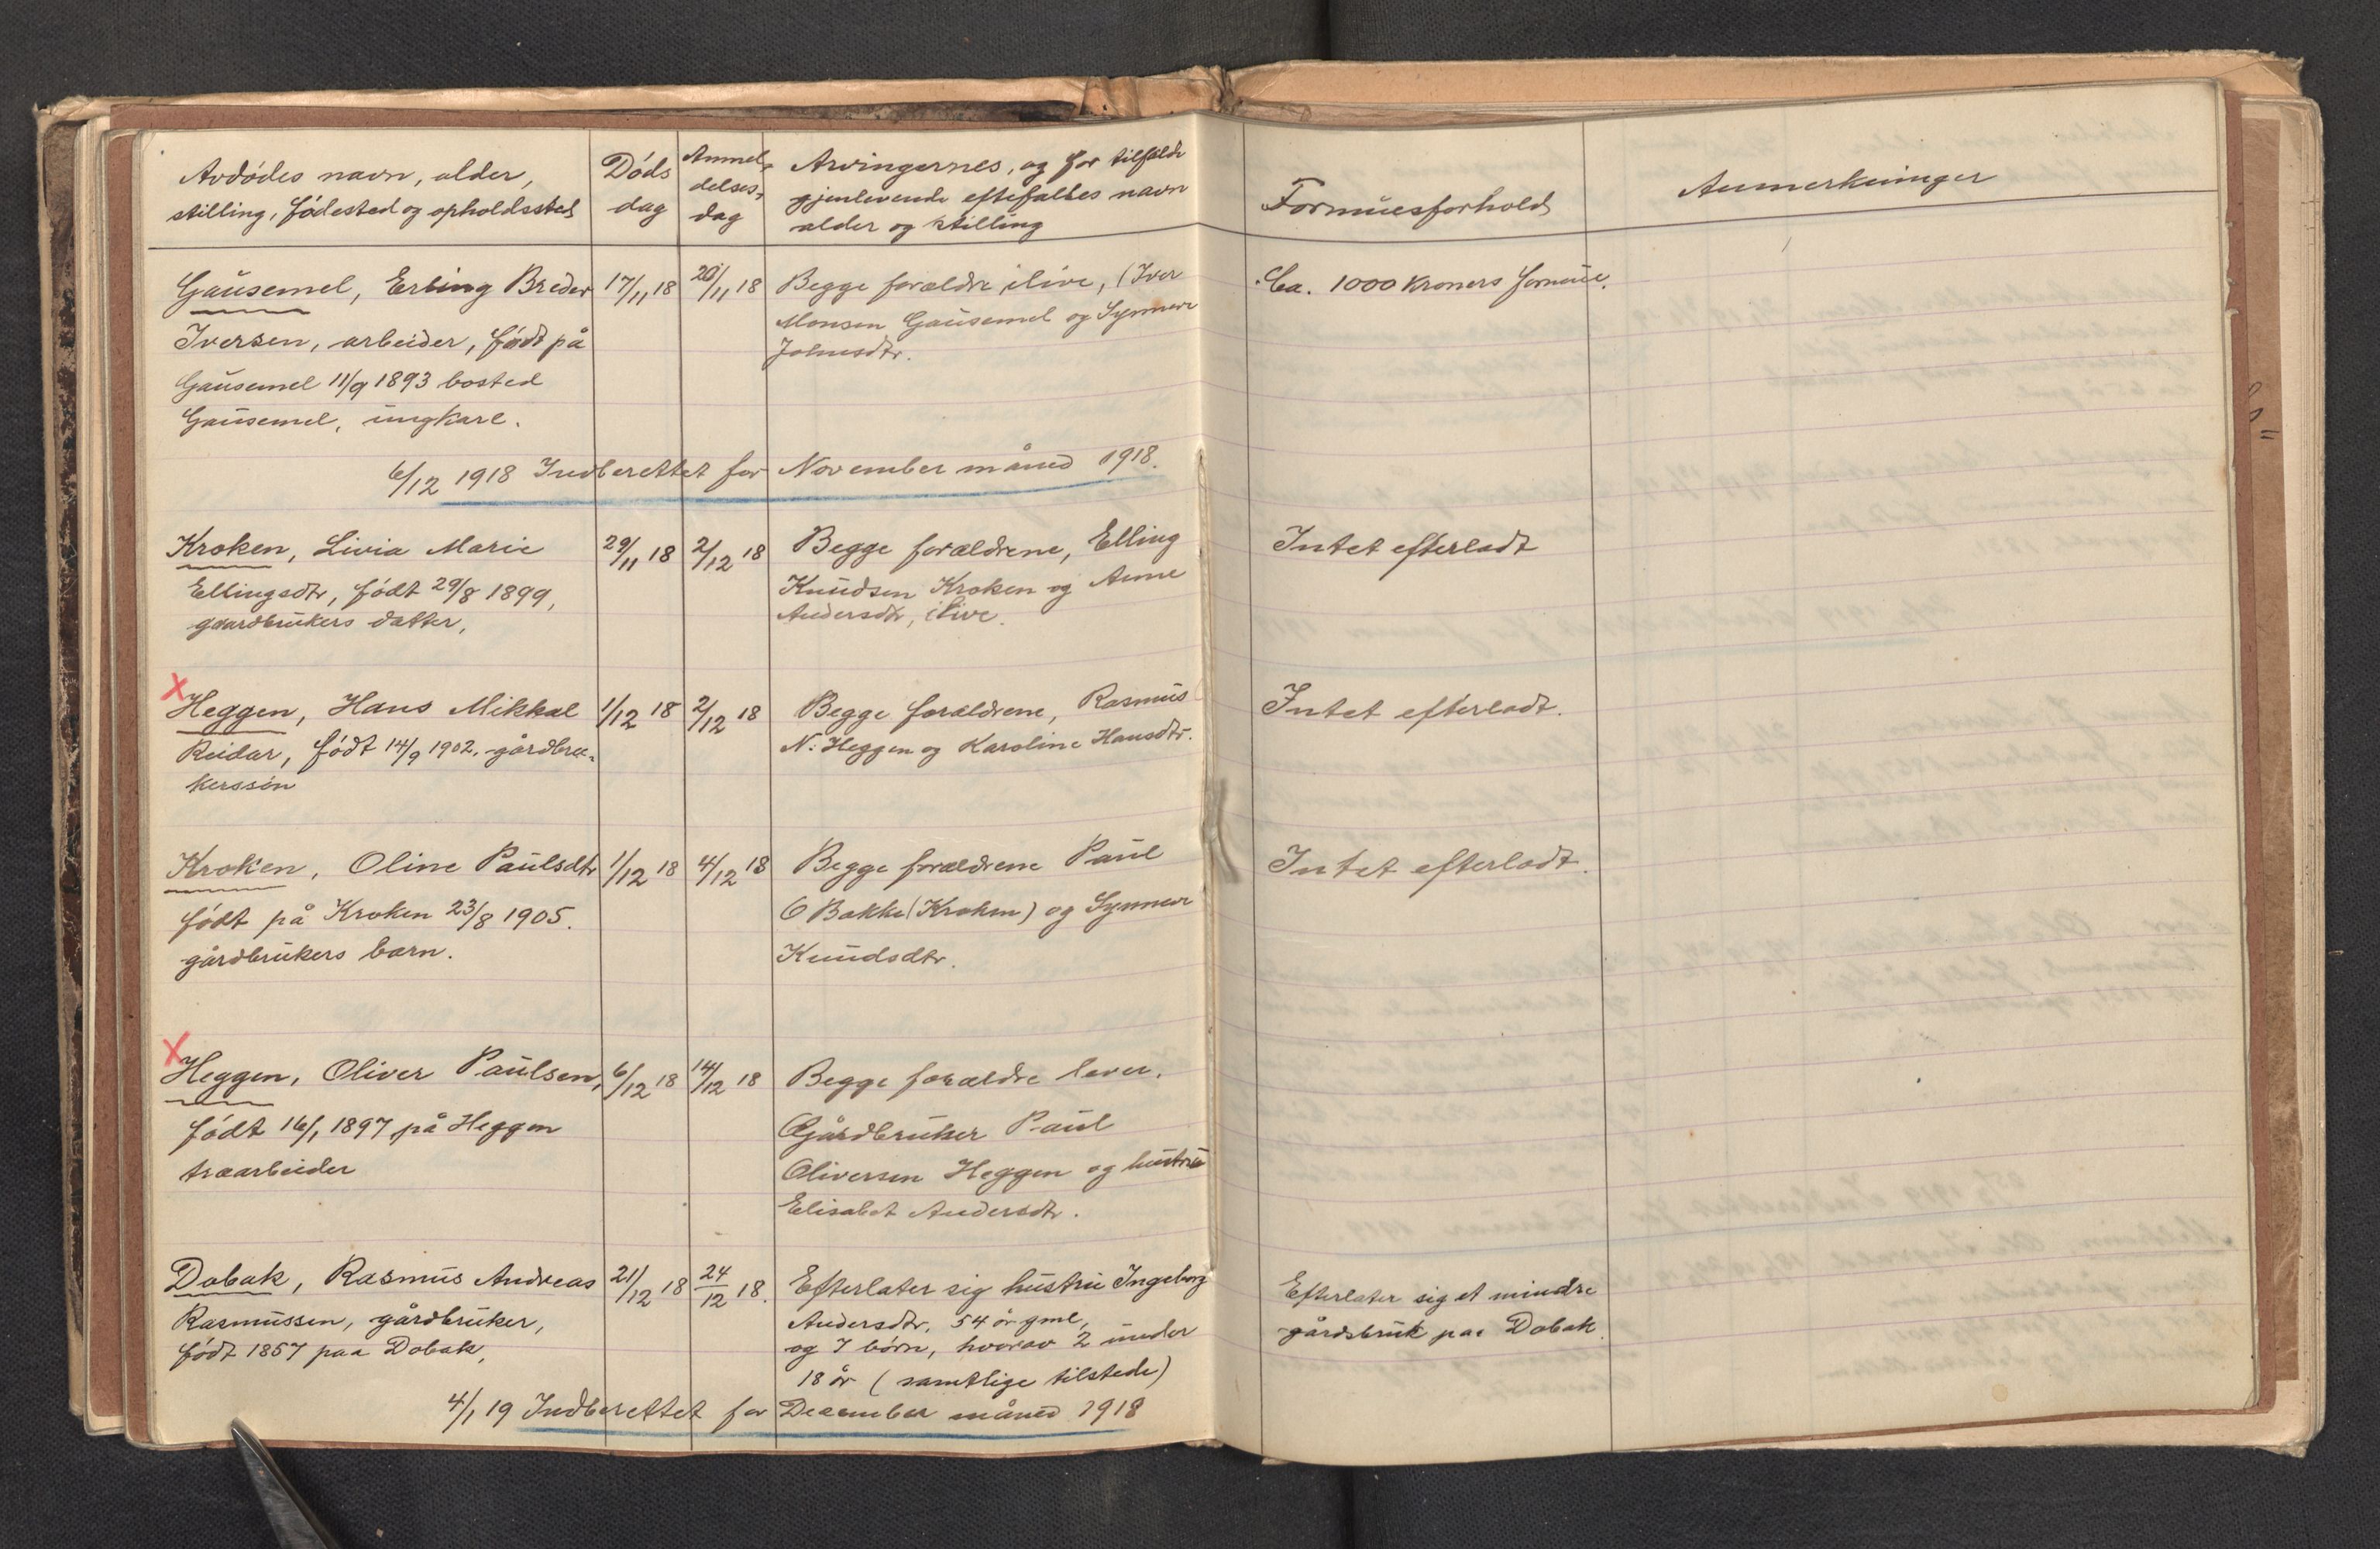 Avdødes navn, alder,
stilling, fødested og opholdssted
Døds
dag
Anmel-
delses-
dag
Arvingernes, og for tilfælde
gjenlevende eftefalles navn
alder og stilling
Formuesforhold
Anmerkninger
Gausemel, Erling Breder
Iversen, arbeider, født på
Gausemel 11/9 1893 bosted
Gausemel, ungkarl.
17/11 18
20/11 18
Begge forældre ilive, (Iver
Monsen Gausemel og Synneve
Johnsdtr.
Ca. 1000 kroners formue.
6/12 1918 Indberettet for November måned 1918.
Kroken, Livia Marie
Ellingsdtr, født 29/8 1899,
gaardbrukers datter,
29/11 18
2/12 18
Begge forældrene, Elling
Knudsen Kroken og Anne
Andersdtr, ilive.
Intet efterladt
X
Heggen, Hans Mikkal
Reidar, født 14/9 1902, gårdbru-
kerssøn
1/12 18
2/12 18
Begge forældrene, Rasmus
N. Heggen og Karoline Hansdtr.
Intet efterladt.
Kroken, Oline Paulsdtr
født på Kroken 23/8 1905.
gårdbrukers barn.
1/12 18
4/12 18
Begge forældrene Paul
O Bakke (Kroken) og Synneve
Knudsdtr.
Intet efterladt.
X
Heggen, Oliver Paulsen,
født 16/1 1897 på Heggen
træarbeider
6/12 18
14/12 18
Begge forældre lever.
Gårdbruker Paul
Oliversen Heggen og hustru
Elisabet Andersdtr.
Dobak, Rasmus Andreas
Rasmussen, gårdbruker,
født 1857 paa Dobak,
21/12 18
24/12 18.
Efterlater sig hustru Ingeborg
Andersdtr, 54 år gml,
og 7 børn, hvorav 2 under
18 år (samtlige tilstede)
Efterlater sig et mindre
gårdsbruk paa Dobak.
4/1 19 Indberettet for December måned 1918